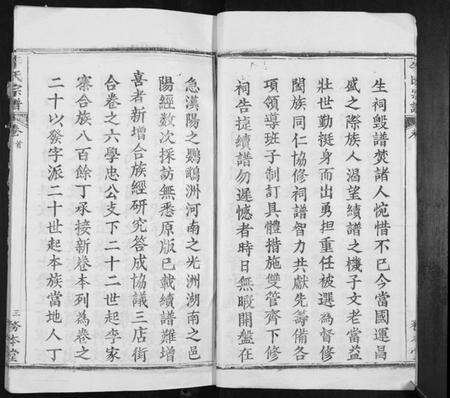 生祠毀譜焚諸人惋惜不已今當國運昌
盛之際族人渴望續譜之機子文老當益
壯世勤挺身而出勇担重任被選為督修
闔族同仁協修祠譜智力共獻先籌備各
項領導班子制訂具體措施雙管齊下修
祠告㨗續譜勿遲憾者時日無暇開盤在
急漢陽之鸚鵡洲河南之光洲湖南之邑
陽經数次採訪無悉原版已載續譜難增
喜者新增合族經研究答成協議三店街
合卷之六學忠公支下二十二世起李家
寨合族八百餘丁承接新卷本列為卷之
二十以癸字派二十世起本族當地人丁
氏宗譜
卷首
三
務本堂